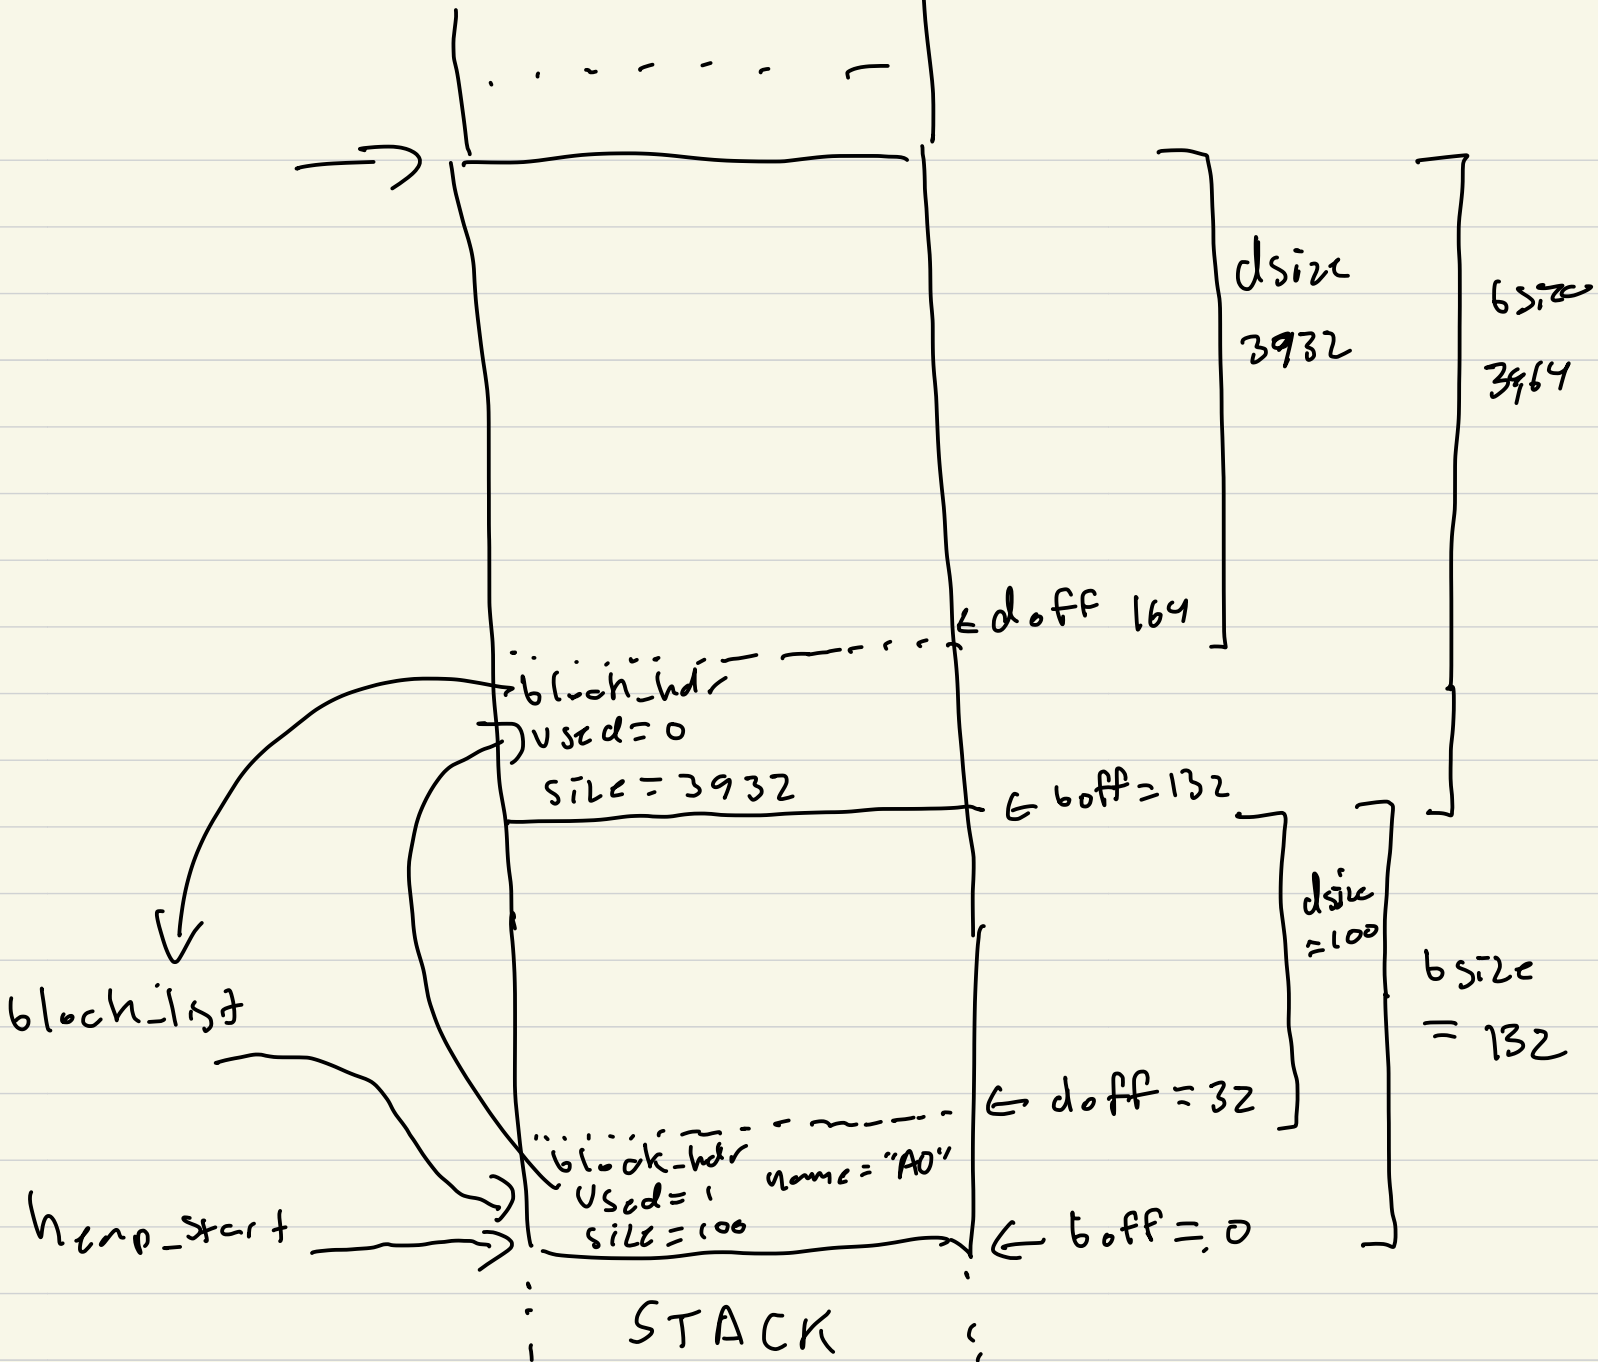 dsize
3932
bsize
3964
doff 164
block_hdr
used=0
size=3932
boff=132
dsize
=100
bsize
= 132
block_list
doff = 32
block_hdr name="A0"
used=1
size=100
heap_start
boff = 0
STACK